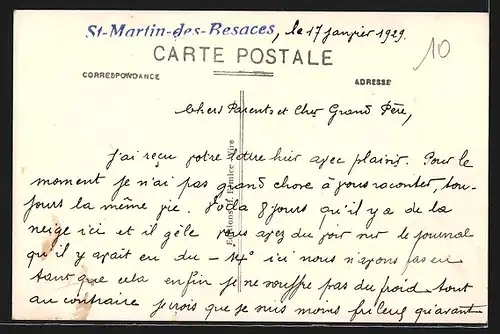 St-Martin-des-Besaces, le 17 janvier 1929.
10
CARTE POSTALE
CORRESPONDANCE
ADRESSE
Chers Parents et Cher Grand Père,
J'ai reçu votre lettre hier avec plaisir. Pour le
moment je n'ai pas grand chose à vous raconter, tou-
jours la même vie. Voila 8 jours qu'il y a de la
neige ici et il gêle vous avez du voir sur le journal
qu'il y avait eu du -14° ici nous n'avons pas eu
tant que cela enfin je ne souffre pas du froid tout
au contraire je crois que je suis moins frileux qu'avant
Editions